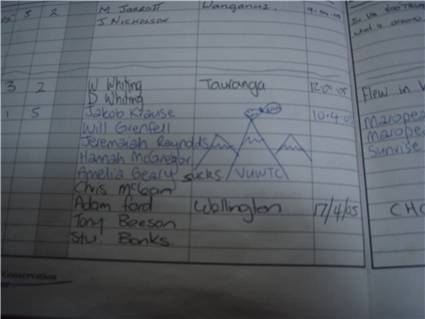 5 2 M Jarrott Wanganui
J Nicholson
3 2 W Whiting Tauranga Flew in
D Whiting
1 5 Jakob Krause 10.4.05
Will Grenfell
Jeremaiah Reynolds
Hannah McGregor
Amelia Geary sucks VUWTC Sunrise
Chris McGann
Adam Ford Wellington 17/4/05
Tony Beeson
Stu Banks
Conservation